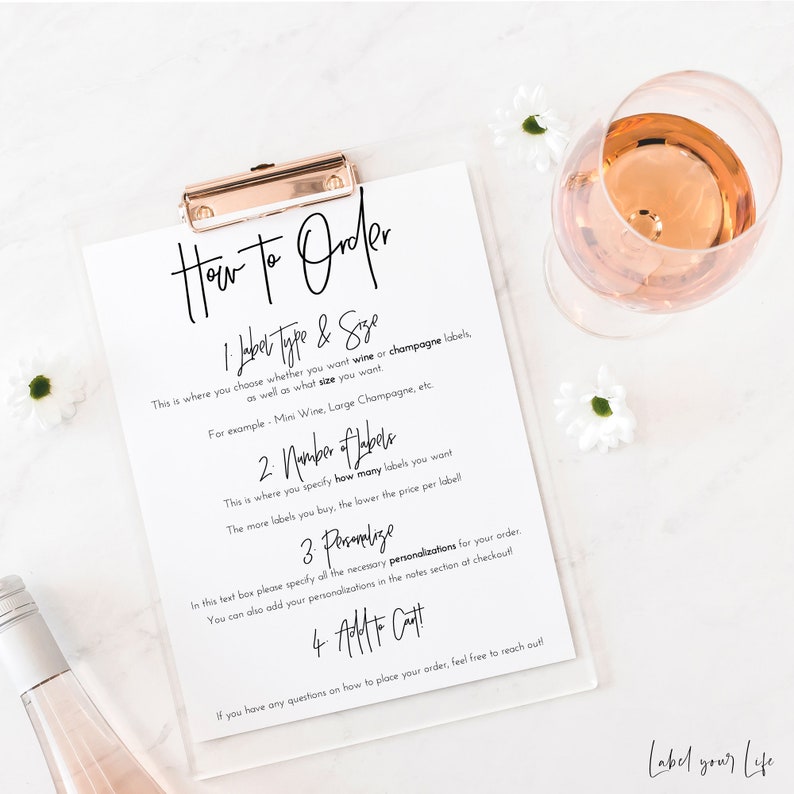 How to Order
1. Label Type & Size
This is where you choose whether you want wine or champagne labels,
as well as what size you want.
For example - Mini Wine, Large Champagne, etc.
2. Number of Labels
This is where you specify how many labels you want
The more labels you buy, the lower the price per label!
3. Personalize
In this text box please specify all the necessary personalizations for your order.
You can also add your personalizations in the notes section at checkout!
4. Add to Cart!
If you have any questions on how to place your order, feel free to reach out!
Label your Life